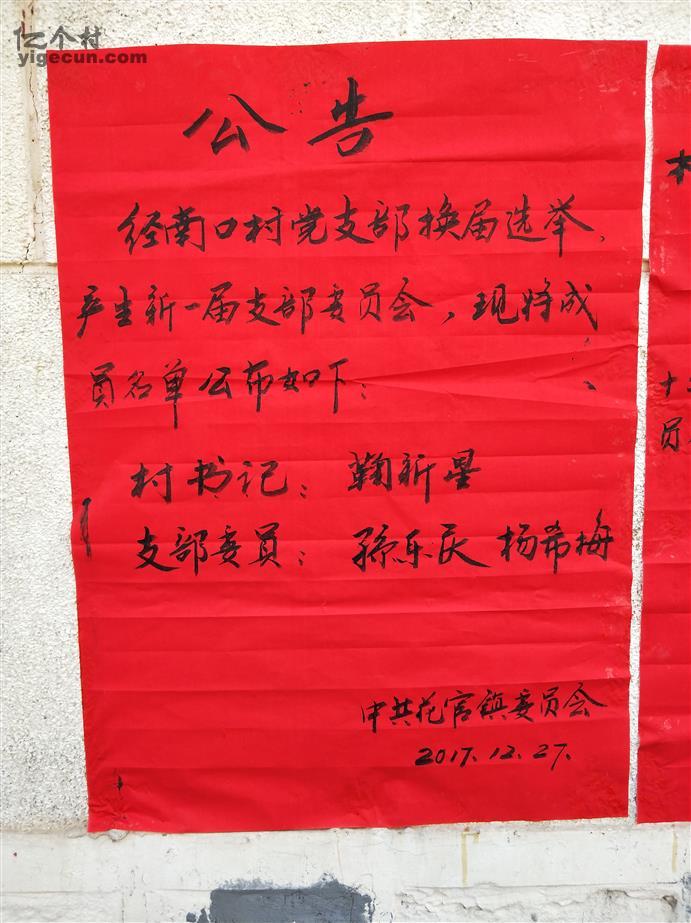 亿个村
yigecun.com
公告
经南口村党支部换届选举，
产生新一届支部委员会，现将成
员名单公布如下：
村书记：鞠新星
支部委员：孙乐庆 杨希梅
中共花官镇委员会
2017.12.27.
十
员